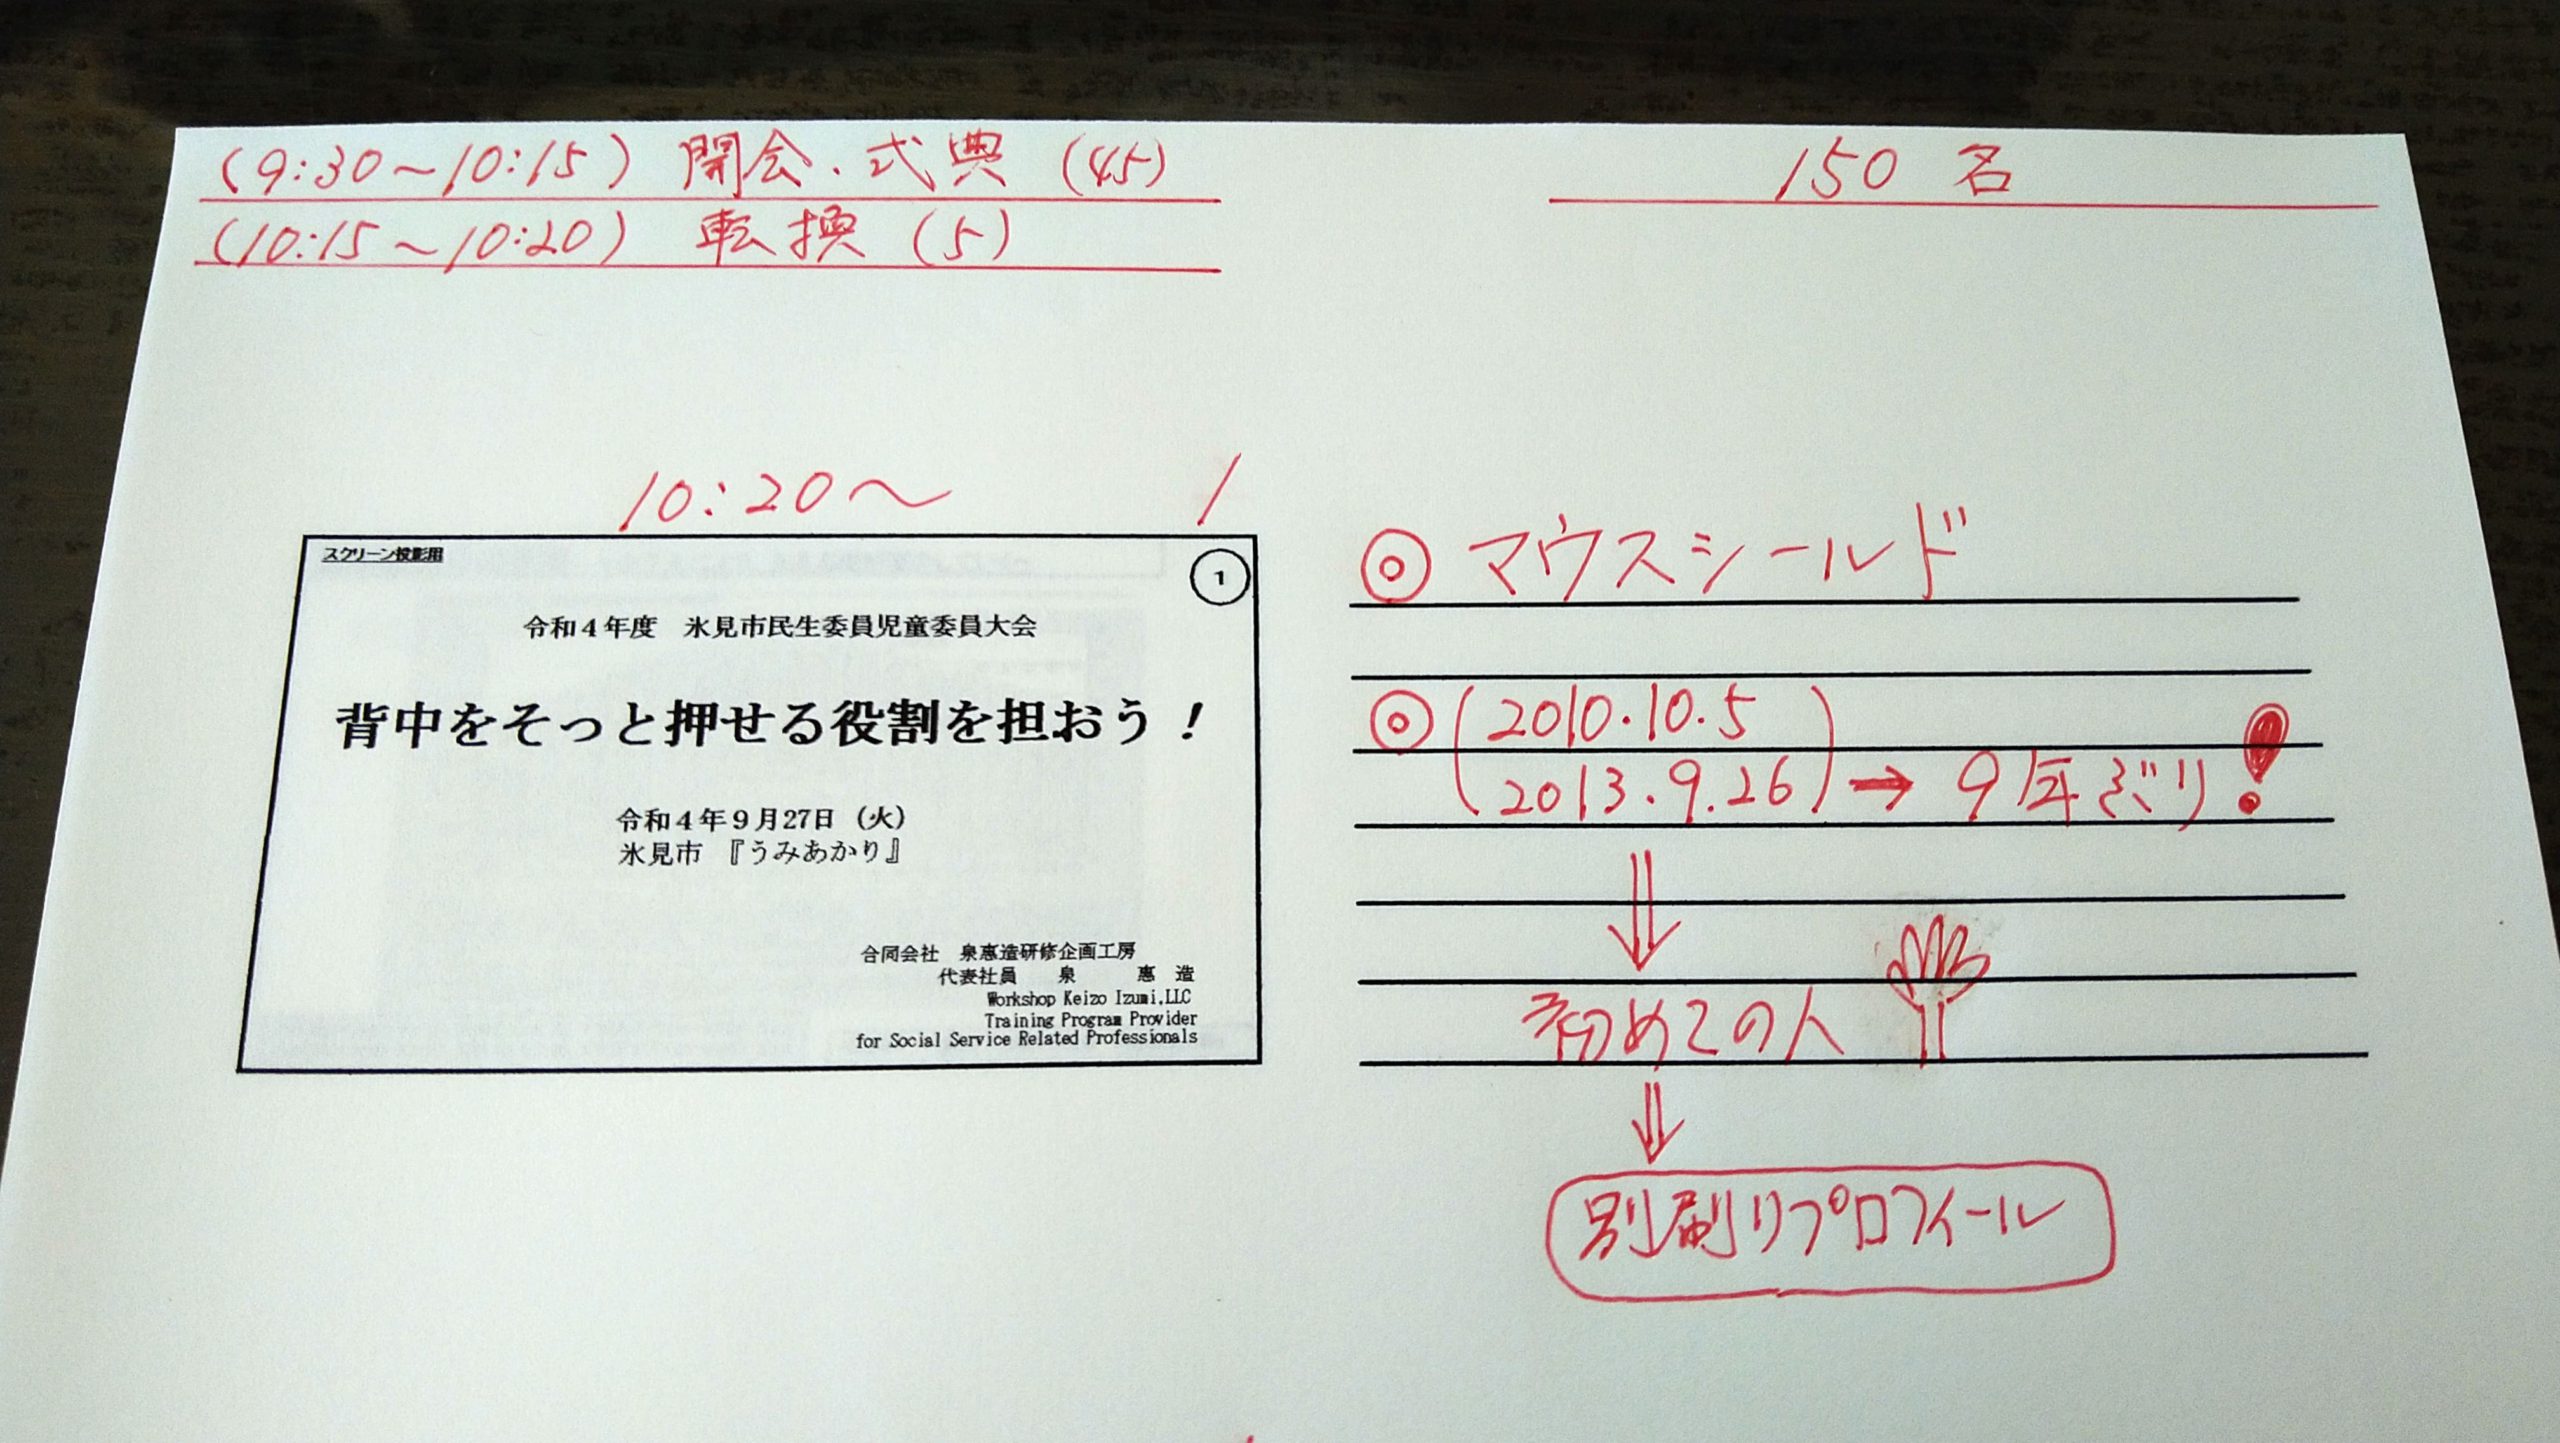 (9:30～10:15) 開会・式典 (45)
150 名
(10:15～10:20) 転換 (5)
10:20～
スクリーン投影用
1
令和４年度　氷見市民生委員児童委員大会
背中をそっと押せる役割を担おう！
令和４年９月27日（火）
氷見市　『うみあかり』
合同会社　泉惠造研修企画工房
代表社員　泉　惠　造
Workshop Keizo Izumi,LLC
Training Program Provider
for Social Service Related Professionals
◎ マウスシールド
◎ (2010.10.5
2013.9.26) → 9年ぶり!
初めての人
別刷りプロフィール